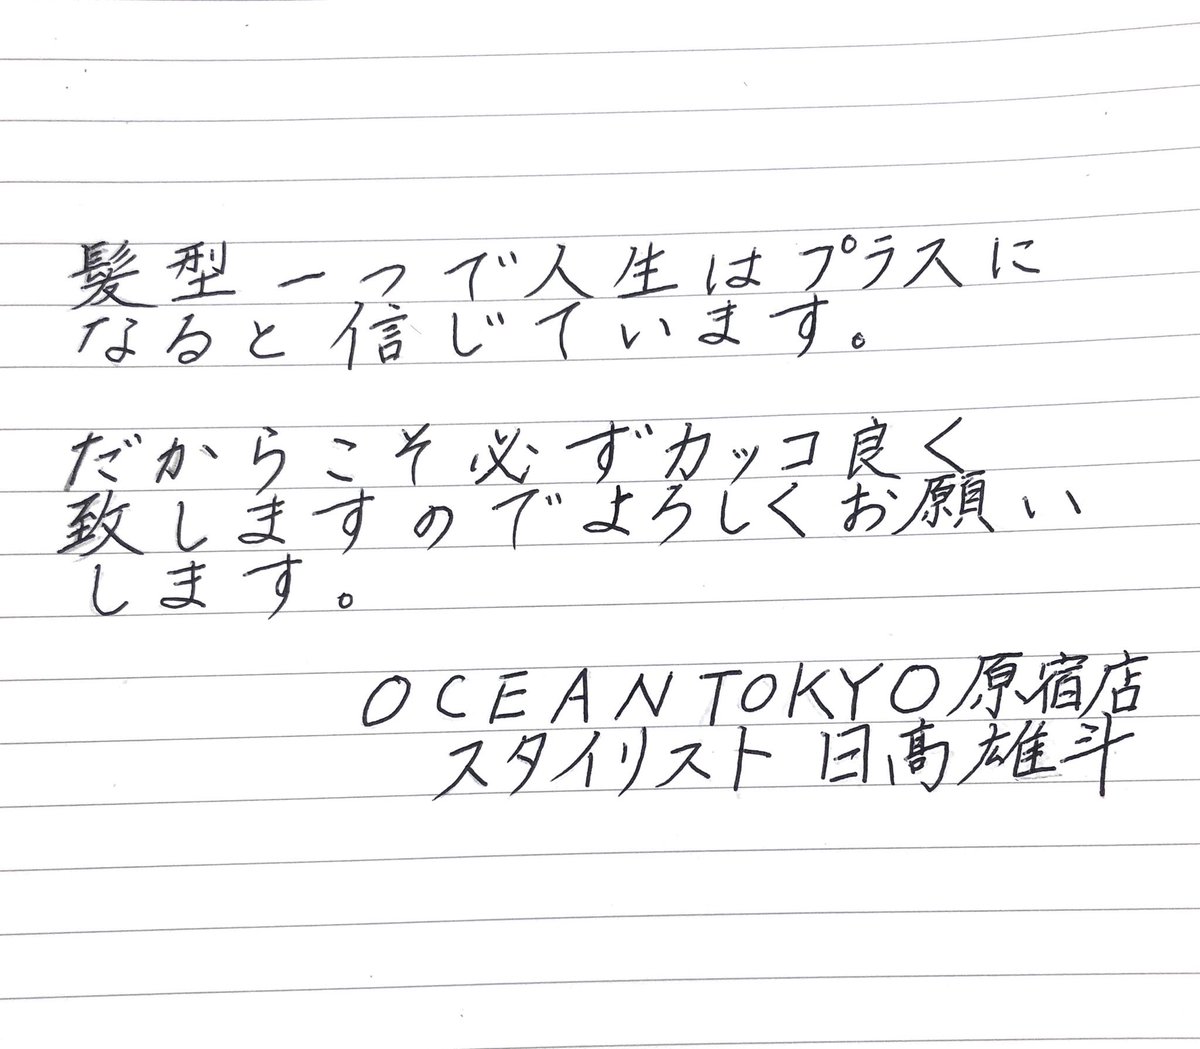 髪型一つで人生はプラスに
なると信じています。
だからこそ必ずカッコ良く
致しますのでよろしくお願い
します。
OCEAN TOKYO原宿店
スタイリスト 日髙雄斗